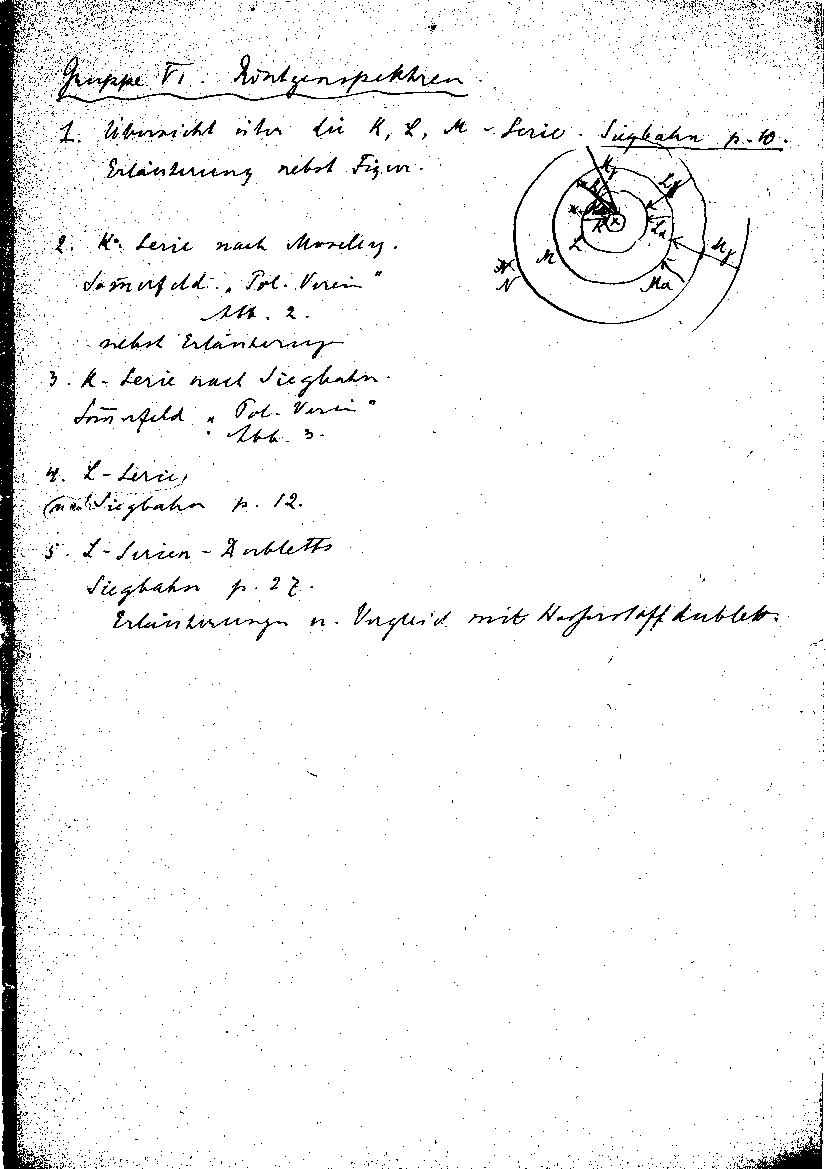 Gruppe VI. Röntgenspektren.
1. Übersicht über die K, L, M-Serie. Siegbahn p. 10.
Erläuterung nebst Figur.
2. K-Serie nach Moseley.
Som̄erfeld „Pol. Verein"
Abb. 2.
nebst Erläuterung
3. K-Serie nach Siegbahn.
Som̄erfeld „Pol. Verein"
Abb. 3.
4. L-Serie,
(nach Siegbahn p. 12.
5. L-Serien-Dubletts
Siegbahn p. 27.
Erläuterungen u. Vergleich mit Wasserstoffdublett.
Kγ
Lα
K
L
M
N
Mα